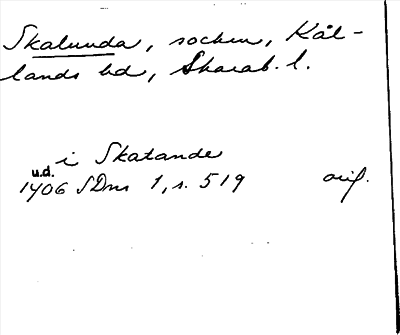 Skalunda, socken, Kål-
lands hd, Skarab. l.
i Skatande
u.d.
1406 SDns 1, s. 519 orig.